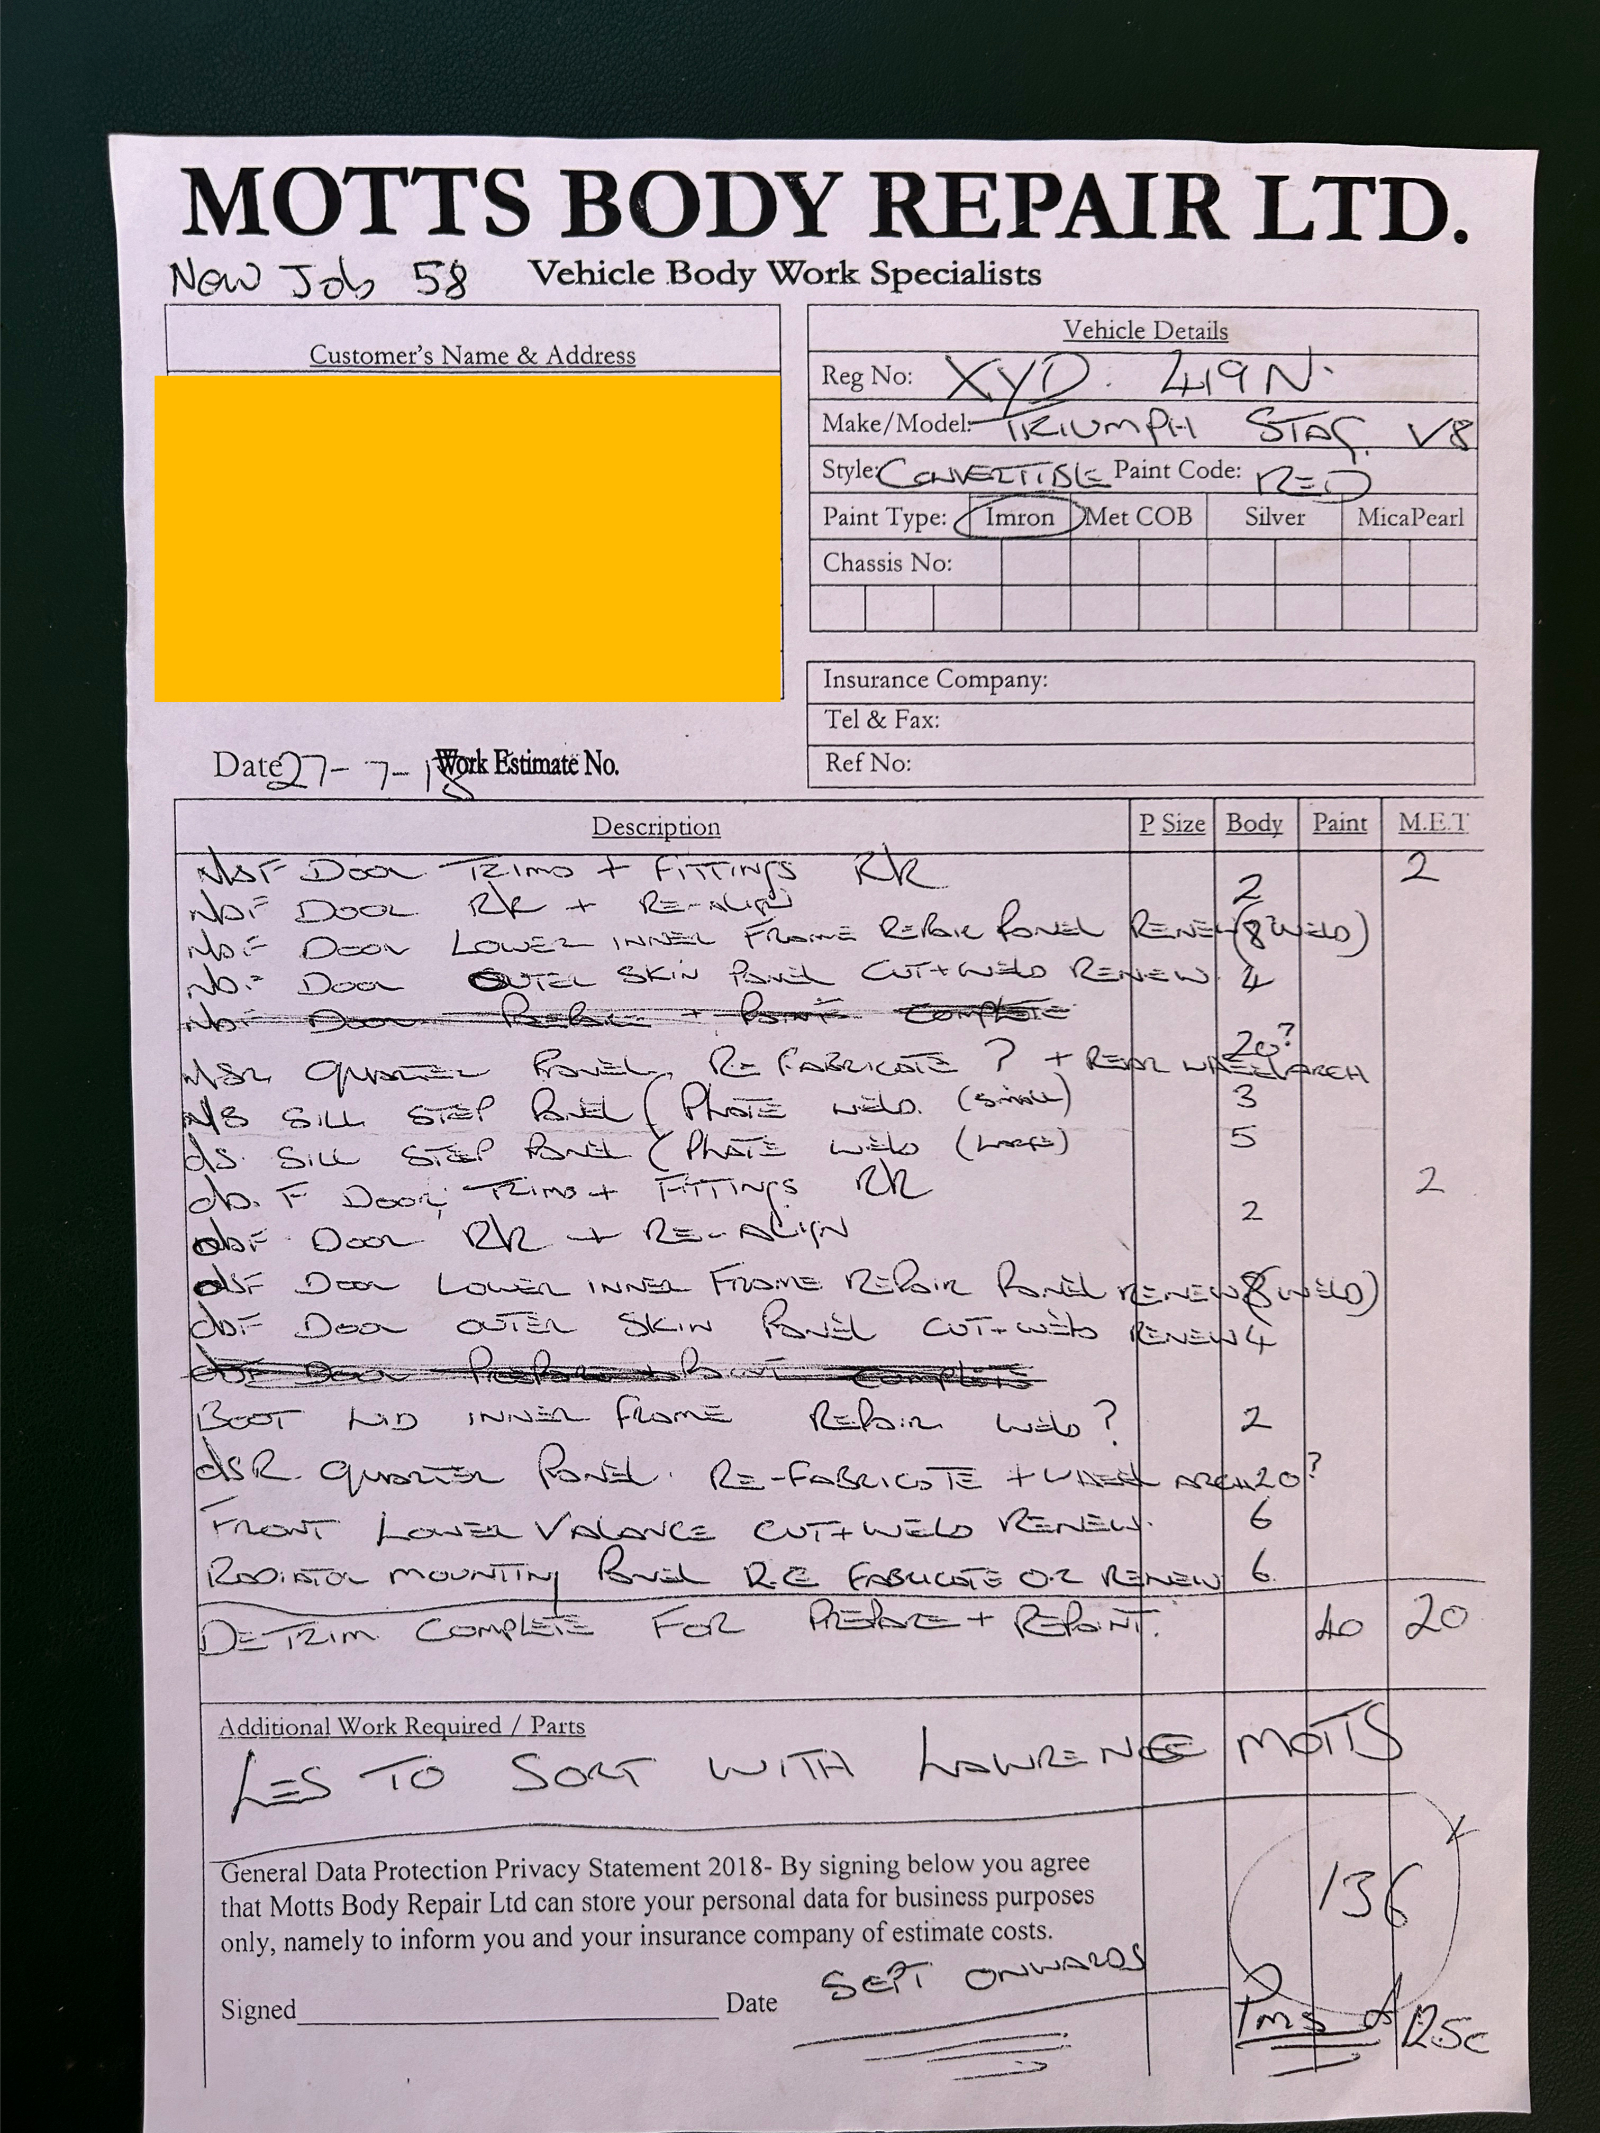 MOTTS BODY REPAIR LTD.
New Job 58 Vehicle Body Work Specialists
Customer's Name & Address
Vehicle Details
Reg No: XYD 419N
Make/Model: TRIUMPH STAG V8
Style: CONVERTIBLE Paint Code: RED
Paint Type: Imron Met COB Silver MicaPearl
Chassis No:
Insurance Company:
Tel & Fax:
Ref No:
Date 27-7-18 Work Estimate No.
Description P Size Body Paint M.E.T
NSF DOOR TRIMS + FITTINGS R/R 2
NSF DOOR R/R + RE-ALIGN 2
NSF DOOR LOWER INNER FRAME REPAIR PANEL RENEW (8? WELD)
NSF DOOR OUTER SKIN PANEL CUT+WELD RENEW 4
NSF DOOR PREPARE + PAINT COMPLETE
NSR QUARTER PANEL RE FABRICATE ? + REAR WHEEL ARCH 20?
N/S SILL STEP PANEL (PLATE WELD (SMALL) 3
dS. SILL STEP PANEL (PLATE WELD (LARGE) 5
dS. F DOOR, TRIMS + FITTINGS R/R 2
dSF DOOR R/R + RE-ALIGN 2
dSF DOOR LOWER INNER FRAME REPAIR PANEL RENEW (8 WELD)
dSF DOOR OUTER SKIN PANEL CUT+WELD RENEW 4
dSF DOOR PREPARE + PAINT COMPLETE
BOOT LID INNER FRAME REPAIR WELD? 2
dSR QUARTER PANEL. RE-FABRICATE + WHEEL ARCH 20?
FRONT LOWER VALANCE CUT+WELD RENEW. 6
RADIATOR MOUNTING PANEL RE FABRICATE OR RENEW 6
DETRIM COMPLETE FOR PREPARE + REPAINT. 40 20
Additional Work Required / Parts
LES TO SORT WITH LAWRENCE MOTTS
General Data Protection Privacy Statement 2018- By signing below you agree
that Motts Body Repair Ltd can store your personal data for business purposes
only, namely to inform you and your insurance company of estimate costs.
136
SEPT ONWARDS
Signed Date